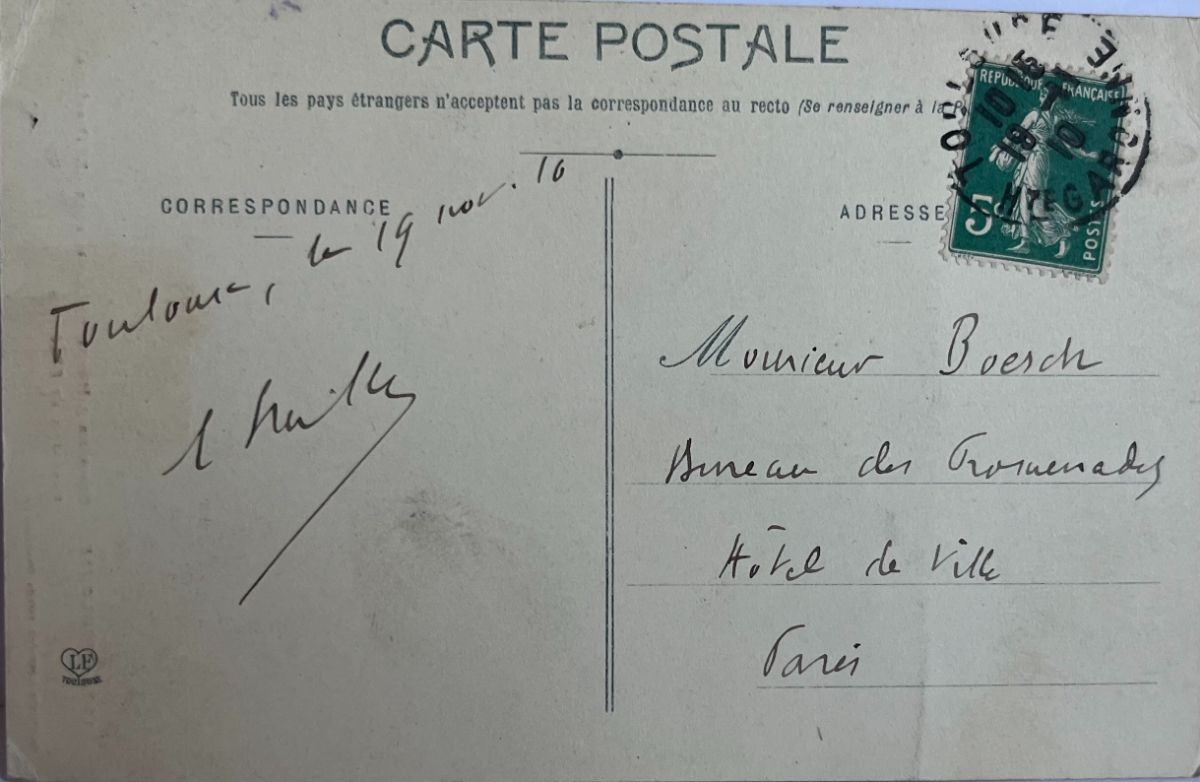 CARTE POSTALE
Tous les pays étrangers n'acceptent pas la correspondance au recto (Se renseigner à la P
CORRESPONDANCE
ADRESSE
RÉPUBLIQUE FRANÇAISE
5c
POSTES
TOULOUSE
HTE GARONNE
Toulouse, le 19 nov. 10
Monsieur Boesch
Bureau des Promenades
Hôtel de Ville
Paris
LF
TOULOUSE